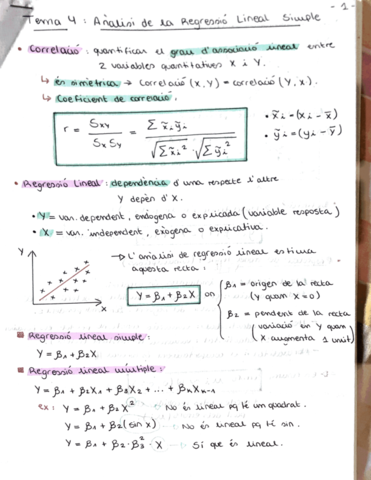 - 1 -
Tema 4 : Anàlisi de la Regressió Lineal Simple
• Correlació : quantificar el grau d'associació lineal entre
2 variables quantitatives X i Y.
↳ és simètrica → Correlació (X,Y) = correlació (Y,X).
↳ Coeficient de correlació :
r = Sxy / Sx Sy = Σ x̃i ỹi / √Σ x̃i² · √Σ ỹi²
• x̃i = (xi - x̄)
• ỹi = (yi - ȳ)
• Regressió Lineal : dependència d'una respecte l'altre
Y depèn d'X.
• Y = var. dependent, endògena o explicada (variable resposta)
• X = var. independent, exògena o explicativa.
Y
X
→ L'anàlisi de regressió lineal estima
aquesta recta :
Y = β1 + β2X on
β1 = origen de la recta
(Y quan X=0)
β2 = pendent de la recta
(variació en Y quan
X augmenta 1 unit)
Regressió lineal simple :
Y = β1 + β2X
Regressió lineal múltiple :
Y = β1 + β2X1 + β3X2 + ... + βkXk-1
ex : Y = β1 + β2X² No és lineal pq té un quadrat.
Y = β1 + β2(sin x) No és lineal pq té sin.
Y = β1 + β2 · β3² · X Sí que és lineal.